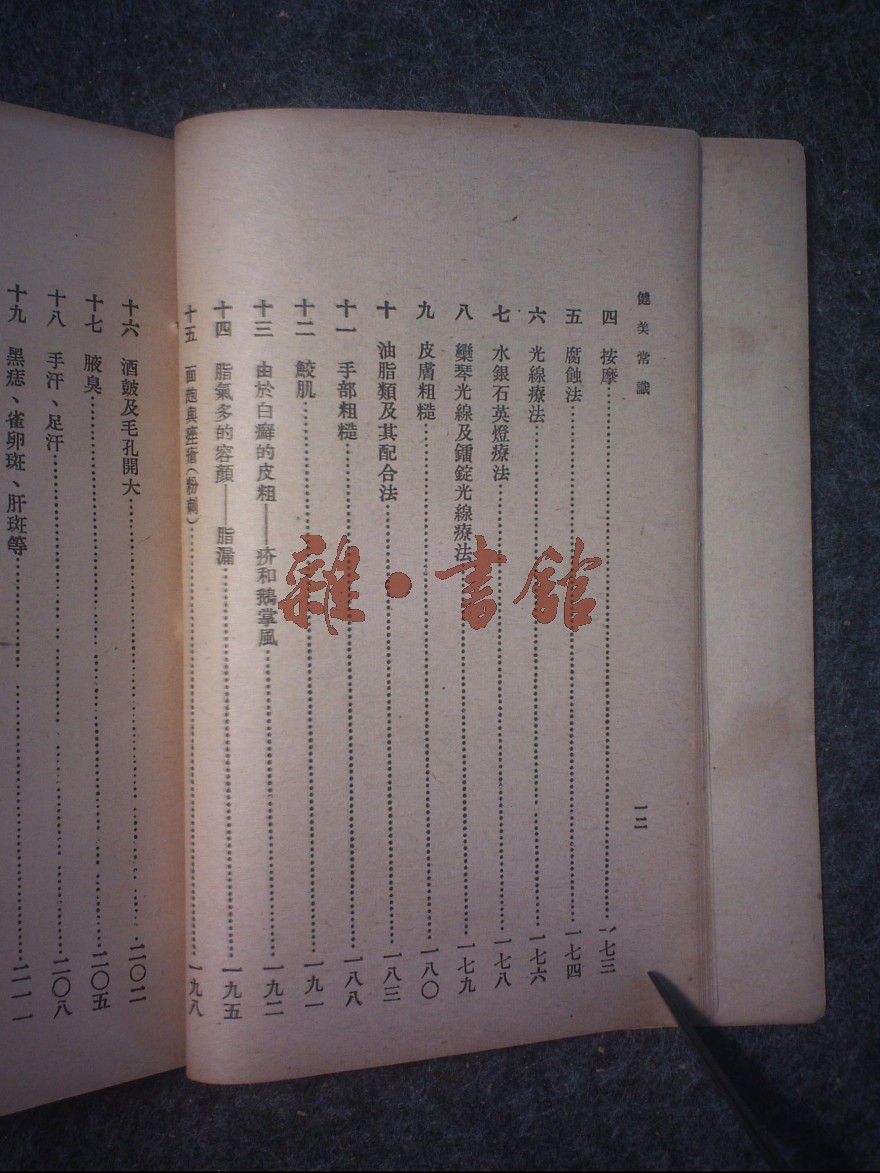 健美常識
一二
四 按摩……一七三
五 腐蝕法……一七四
六 光線療法……一七六
七 水銀石英燈療法……一七八
八 欒琴光線及鐳錠光線療法……一七九
九 皮膚粗糙……一八〇
十 油脂類及其配合法……一八三
十一 手部粗糙……一八八
十二 鮫肌……一九一
十三 由於白癬的皮粗——疥和鵝掌風……一九二
十四 脂氣多的容顏——脂漏……一九五
十五 面皰與痤瘡(粉刺)……一九八
十六 酒皶及毛孔開大……二〇二
十七 腋臭……二〇五
十八 手汗、足汗……二〇八
十九 黑痣、雀卵斑、肝斑等……二一一
雜·書館